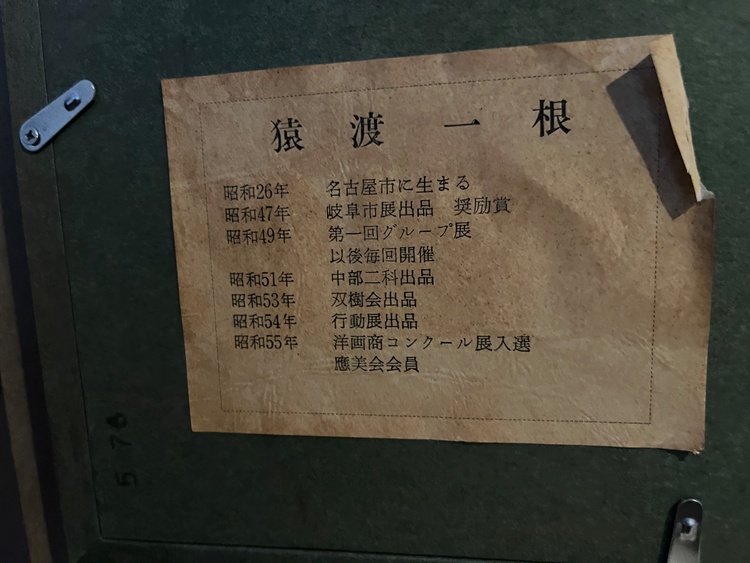 猿渡一根
昭和26年 名古屋市に生まる
昭和47年 岐阜市展出品 奨励賞
昭和49年 第一回グループ展
以後毎回開催
昭和51年 中部二科出品
昭和53年 双樹会出品
昭和54年 行動展出品
昭和55年 洋画商コンクール展入選
應美会会員
578